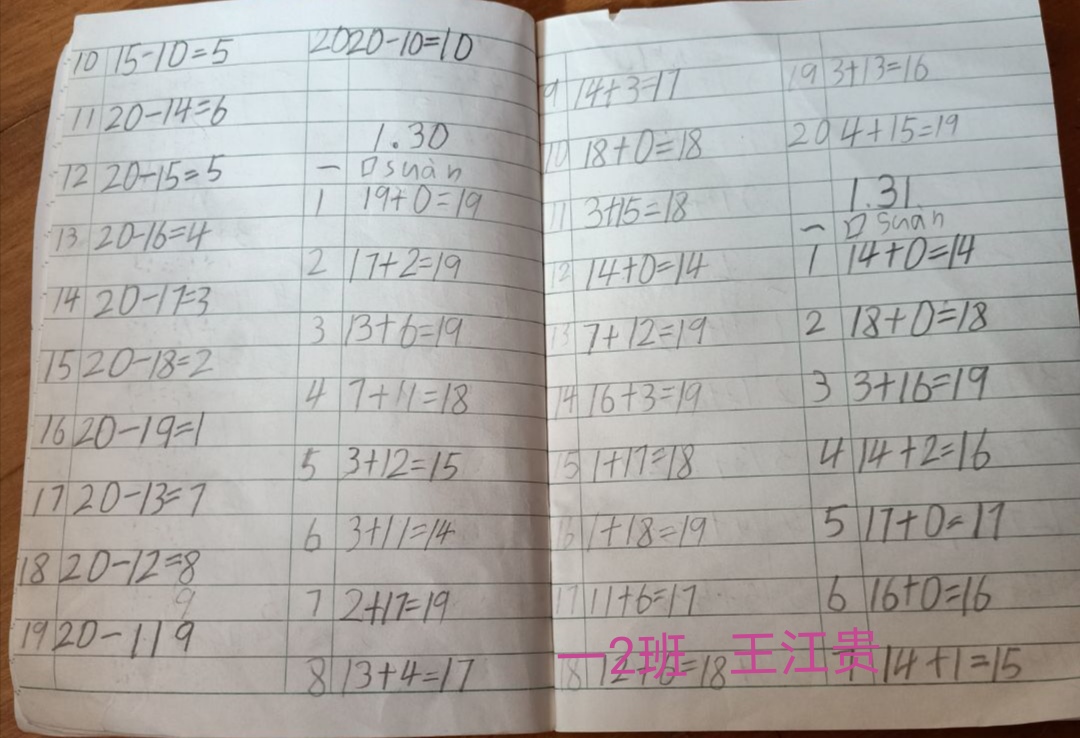 10 15-10=5
11 20-14=6
12 20-15=5
13 20-16=4
14 20-17=3
15 20-18=2
16 20-19=1
17 20-13=7
18 20-12=8
9
19 20-119
20 20-10=10
1.30
一 口suàn
1 19+0=19
2 17+2=19
3 13+6=19
4 7+11=18
5 3+12=15
6 3+11=14
7 2+17=19
8 13+4=17
9 14+3=17
10 18+0=18
11 3+15=18
12 14+0=14
13 7+12=19
14 16+3=19
15 1+17=18
16 1+18=19
17 11+6=17
18 12+6=18
19 3+13=16
20 4+15=19
1.31
一 口suàn
1 14+0=14
2 18+0=18
3 3+16=19
4 14+2=16
5 17+0=17
6 16+0=16
7 14+1=15
一2班 王江贵